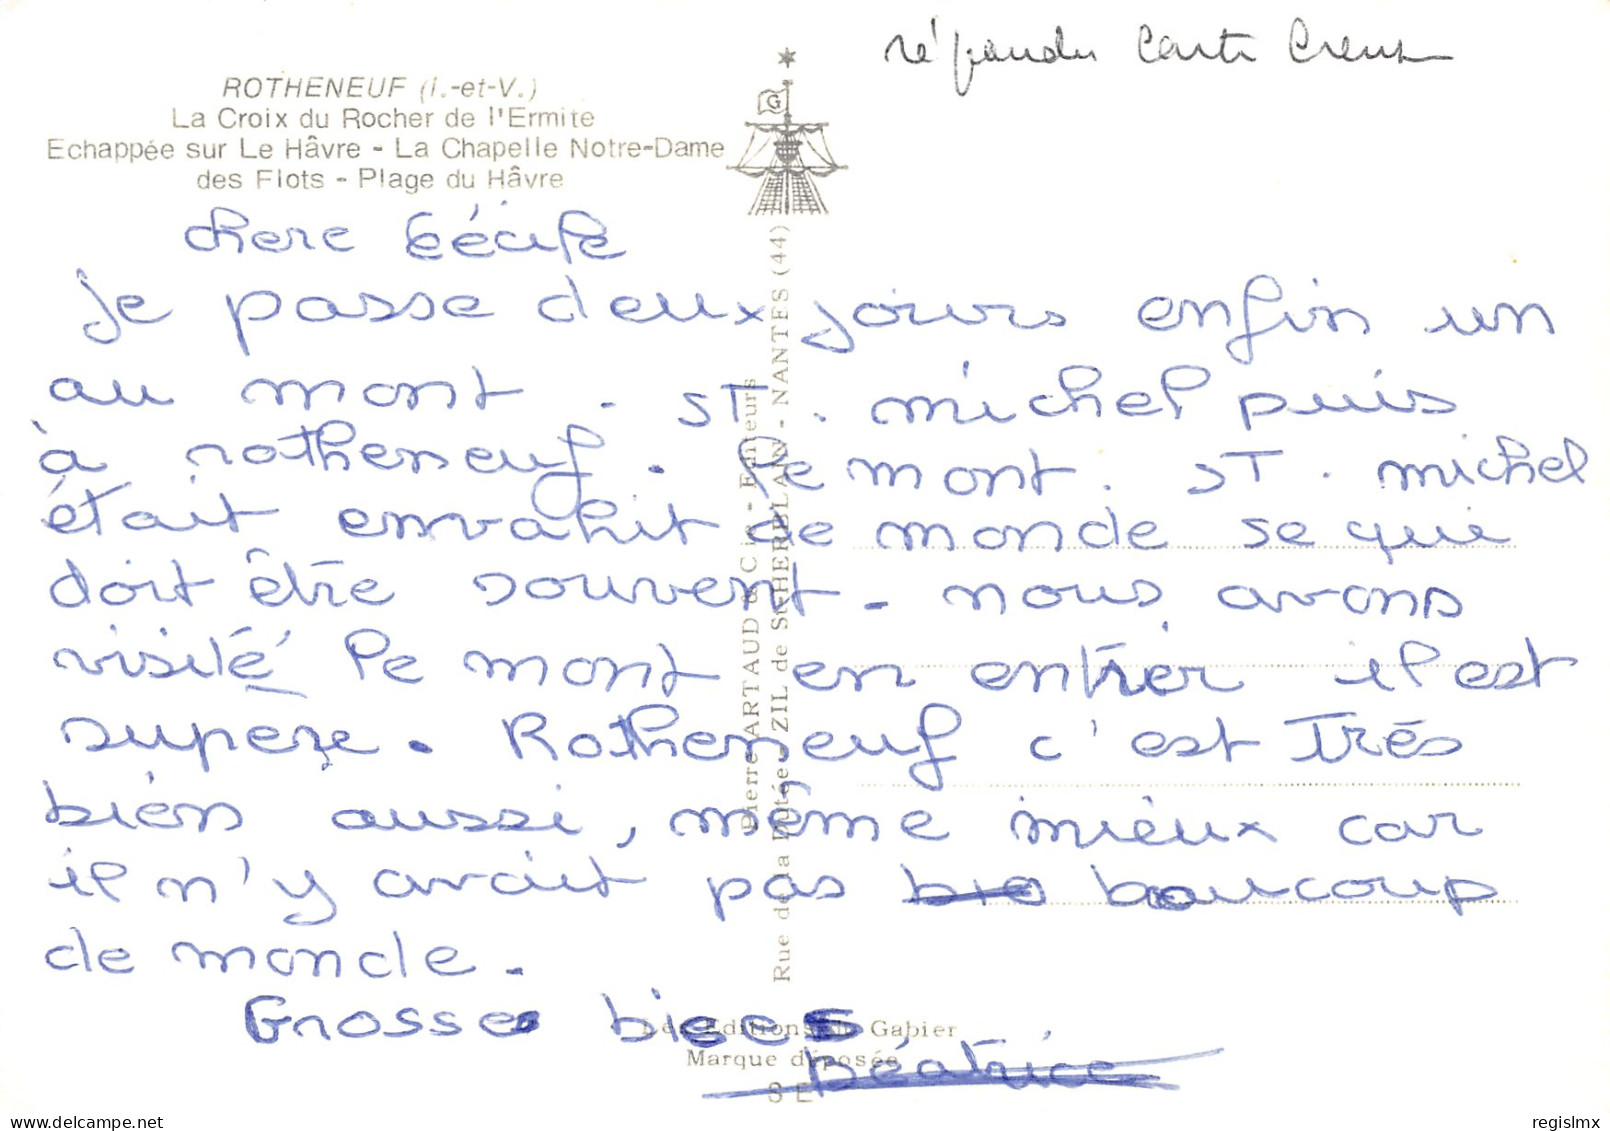 répondu carte Creuse
ROTHENEUF (I.-et-V.)
La Croix du Rocher de l'Ermite
Echappée sur Le Hâvre - La Chapelle Notre-Dame
des Flots - Plage du Hâvre
G
chere Cécile
je passe deux jours enfin un
au mont . ST . michel puis
à rotheneuf . le mont . ST . michel
était envahit de monde se qui
doit être souvent - nous avons
visité le mont en entrier il est
superze . Rotheneuf c'est Très
bien aussi, même mieux car
il n'y avait pas baucoup
de monde .
Grosse bises
béatrice
Pierre ARTAUD & Cie - Editeurs
Rue de la Dutée - ZIL de St-HERBLAIN - NANTES (44)
Les Editions du Gabier
Marque déposée
3 E
regislmx